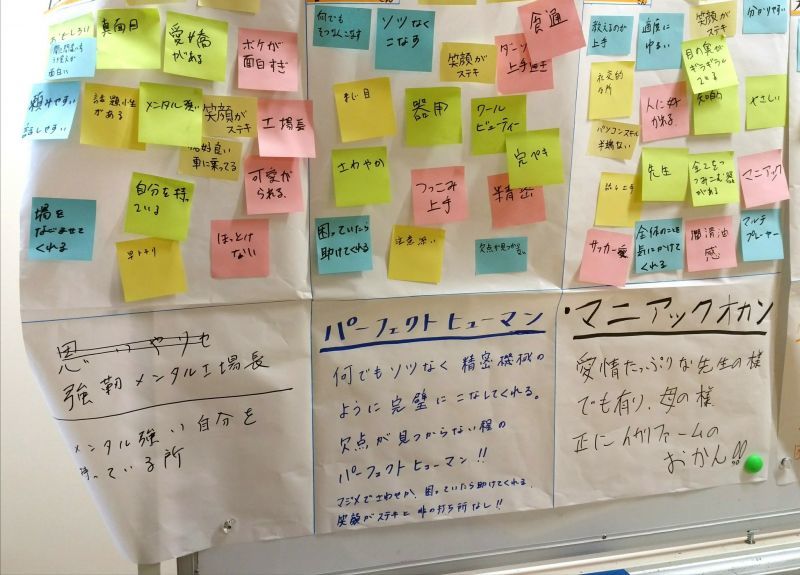 真面目
愛嬌
がある
ボケが
面白すぎ
頼みやすい
話しやすい
話題性
がある
メンタル強い
笑顔が
ステキ
工場長
格好良い
車に乗ってる
可愛が
られる
自分を持っ
ている
場を
なごませて
くれる
ほっとけ
ない
強靭メンタル工場長
メンタル強い自分を
持っている所
何でも
そつなくこなす
ソツなく
こなす
食通
笑顔が
ステキ
ダーツ
上手すぎ
まじ目
器用
クール
ビューティー
さわやか
完ぺき
つっこみ
上手
精密
困っていたら
助けてくれる
注意深い
欠点が見つからない
パーフェクトヒューマン
何でもソツなく精密機械の
ように完璧にこなしてくれる。
欠点が見つからない程の
パーフェクトヒューマン!!
マジメでさわやか、困っていたら助けてくれる。
笑顔がステキと非の打ち所なし!!
教えるのが
上手
適度に
ゆるい
笑顔が
ステキ
分かりやすい
目の奥が
ギラギラし
ている
社交的
な所
人に好
かれる
知的
やさしい
パソコンスキル
半端ない
先生
全てをつ
つみこむ器
がある
マニアック
サッカー愛
全体のことを
気にかけて
くれる
潤滑油
感
マルチ
プレーヤー
・マニアックオカン
愛情たっぷりな先生の様
でも有り、母の様
正に
ファームの
おかん!!